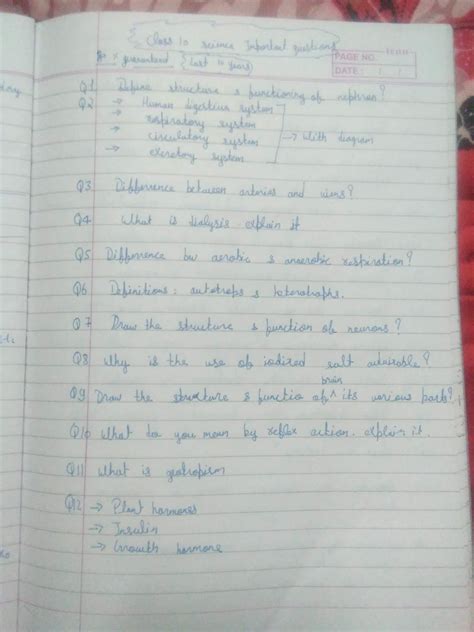 Class 10 science Important questions
% guaranteed (last 10 years)
PAGE NO.
DATE: / /
Q1 Define structure & functioning of nephron?
Q2 → Human digestive system
→ respiratory system
→ circulatory system → With diagram
→ excretory system
Q3 Difference between arteries and viens?
Q4 What is dialysis explain it
Q5 Difference bw aerobic & anaerobic respiration?
Q6 Definitions: autotrops & heterotrophs.
Q7 Draw the structure & function of neurons?
Q8 Why is the use of iodized salt advisable?
brain
Q9 Draw the structure & functio of ^ its various parts?
Q10 What do you mean by reflex action. explain it.
Q11 What is geotropism
Q12 → Plant hormones
→ Insulin
→ Growth hormone